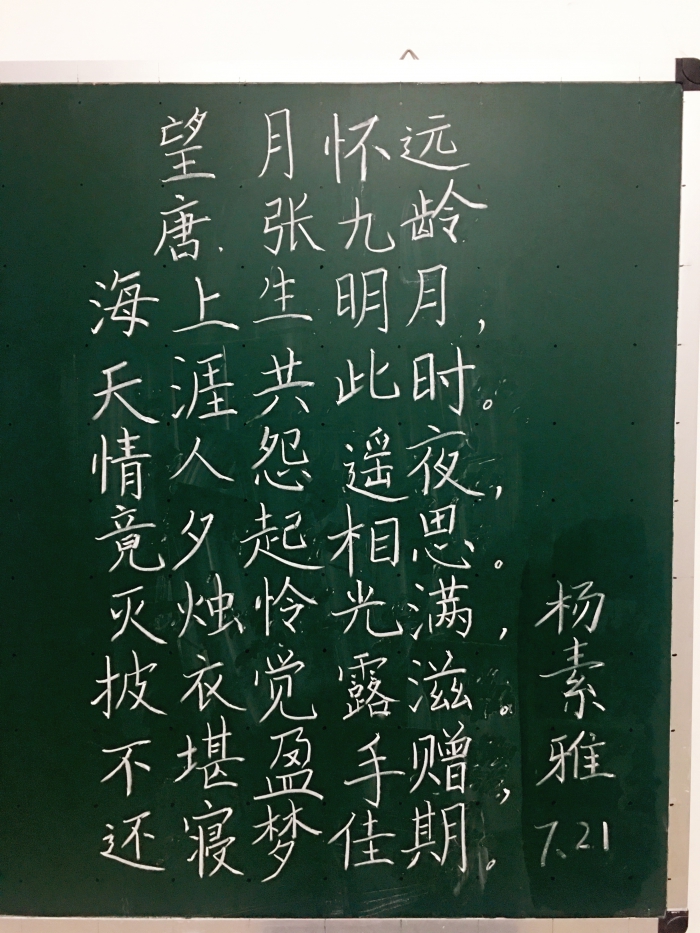 望月怀远
唐.张九龄
海上生明月,
天涯共此时。
情人怨遥夜,
竟夕起相思。
灭烛怜光满,
披衣觉露滋。
不堪盈手赠,
还寝梦佳期。
杨素雅
7.21